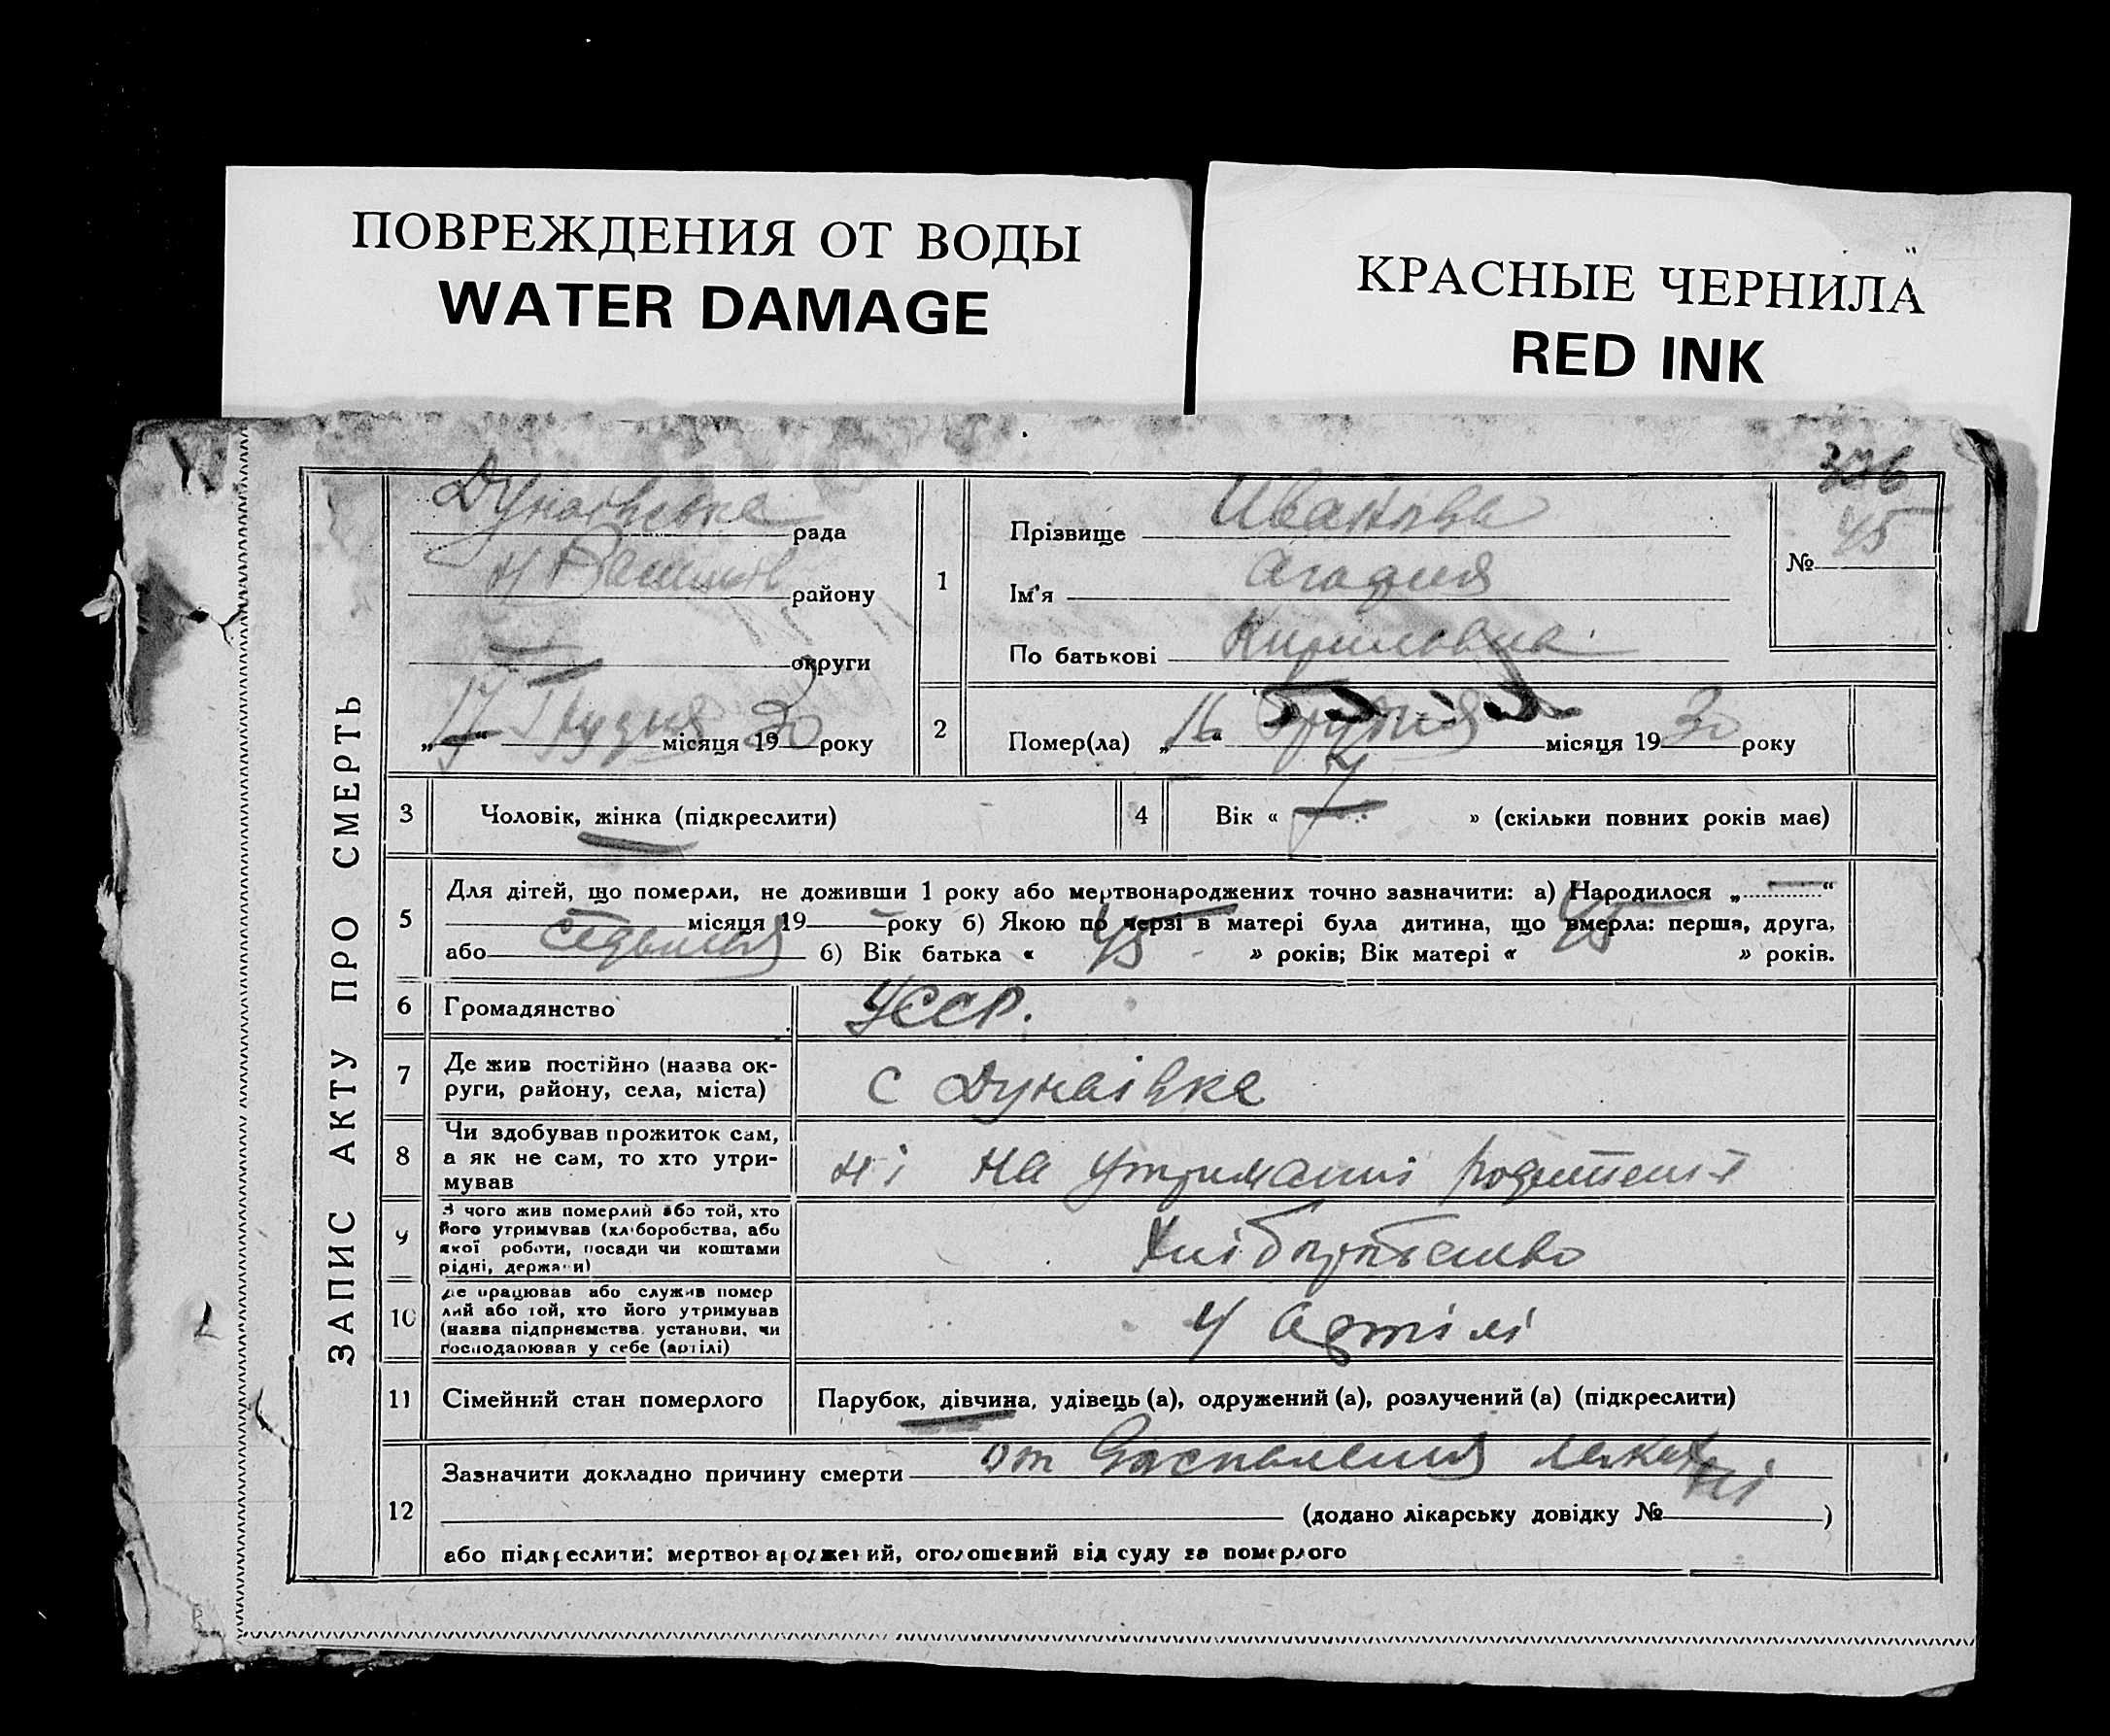 ПОВРЕЖДЕНИЯ ОТ ВОДЫ
WATER DAMAGE
КРАСНЫЕ ЧЕРНИЛА
RED INK
326
ЗАПИС АКТУ ПРО СМЕРТЬ
рада
району
округи
„17“ Грудня місяця 1930 року
1
Прізвище Иванова
Ім'я Агафия
По батькові Кириловна
№ 45
2
Помер(ла) „16“ Грудня місяця 1930 року
3 Чоловік, жінка (підкреслити)
4 Вік « 7 » (скільки повних років має)
5 Для дітей, що померли, не доживши 1 року або мертвонароджених точно зазначити: а) Народилося „—“
місяця 19 року б) Якою по черзі в матері була дитина, що вмерла: перша, друга,
або седьмая б) Вік батька « 45 » років; Вік матері « 45 » років.
6 Громадянство УССР.
7 Де жив постійно (назва ок-
руги, району, села, міста) с Дунаівка
8 Чи здобував прожиток сам,
а як не сам, то хто утри-
мував ні на утриманні
9 З чого жив померлий або той, хто
його утримував (хліборобства, або
якої роботи, посади чи коштами
рідні, держави) Хліборобство
10 Де працював або служив помер
лий або той, хто його утримував
(назва підприємства установи, чи
господарював у себе (артілі) У Артілі
11 Сімейний стан померлого Парубок, дівчина, удівець (а), одружений (а), розлучений (а) (підкреслити)
12 Зазначити докладно причину смерти от Воспаления
(додано лікарську довідку № )
або підкреслити: мертвонароджений, оголошений від суду за померлого